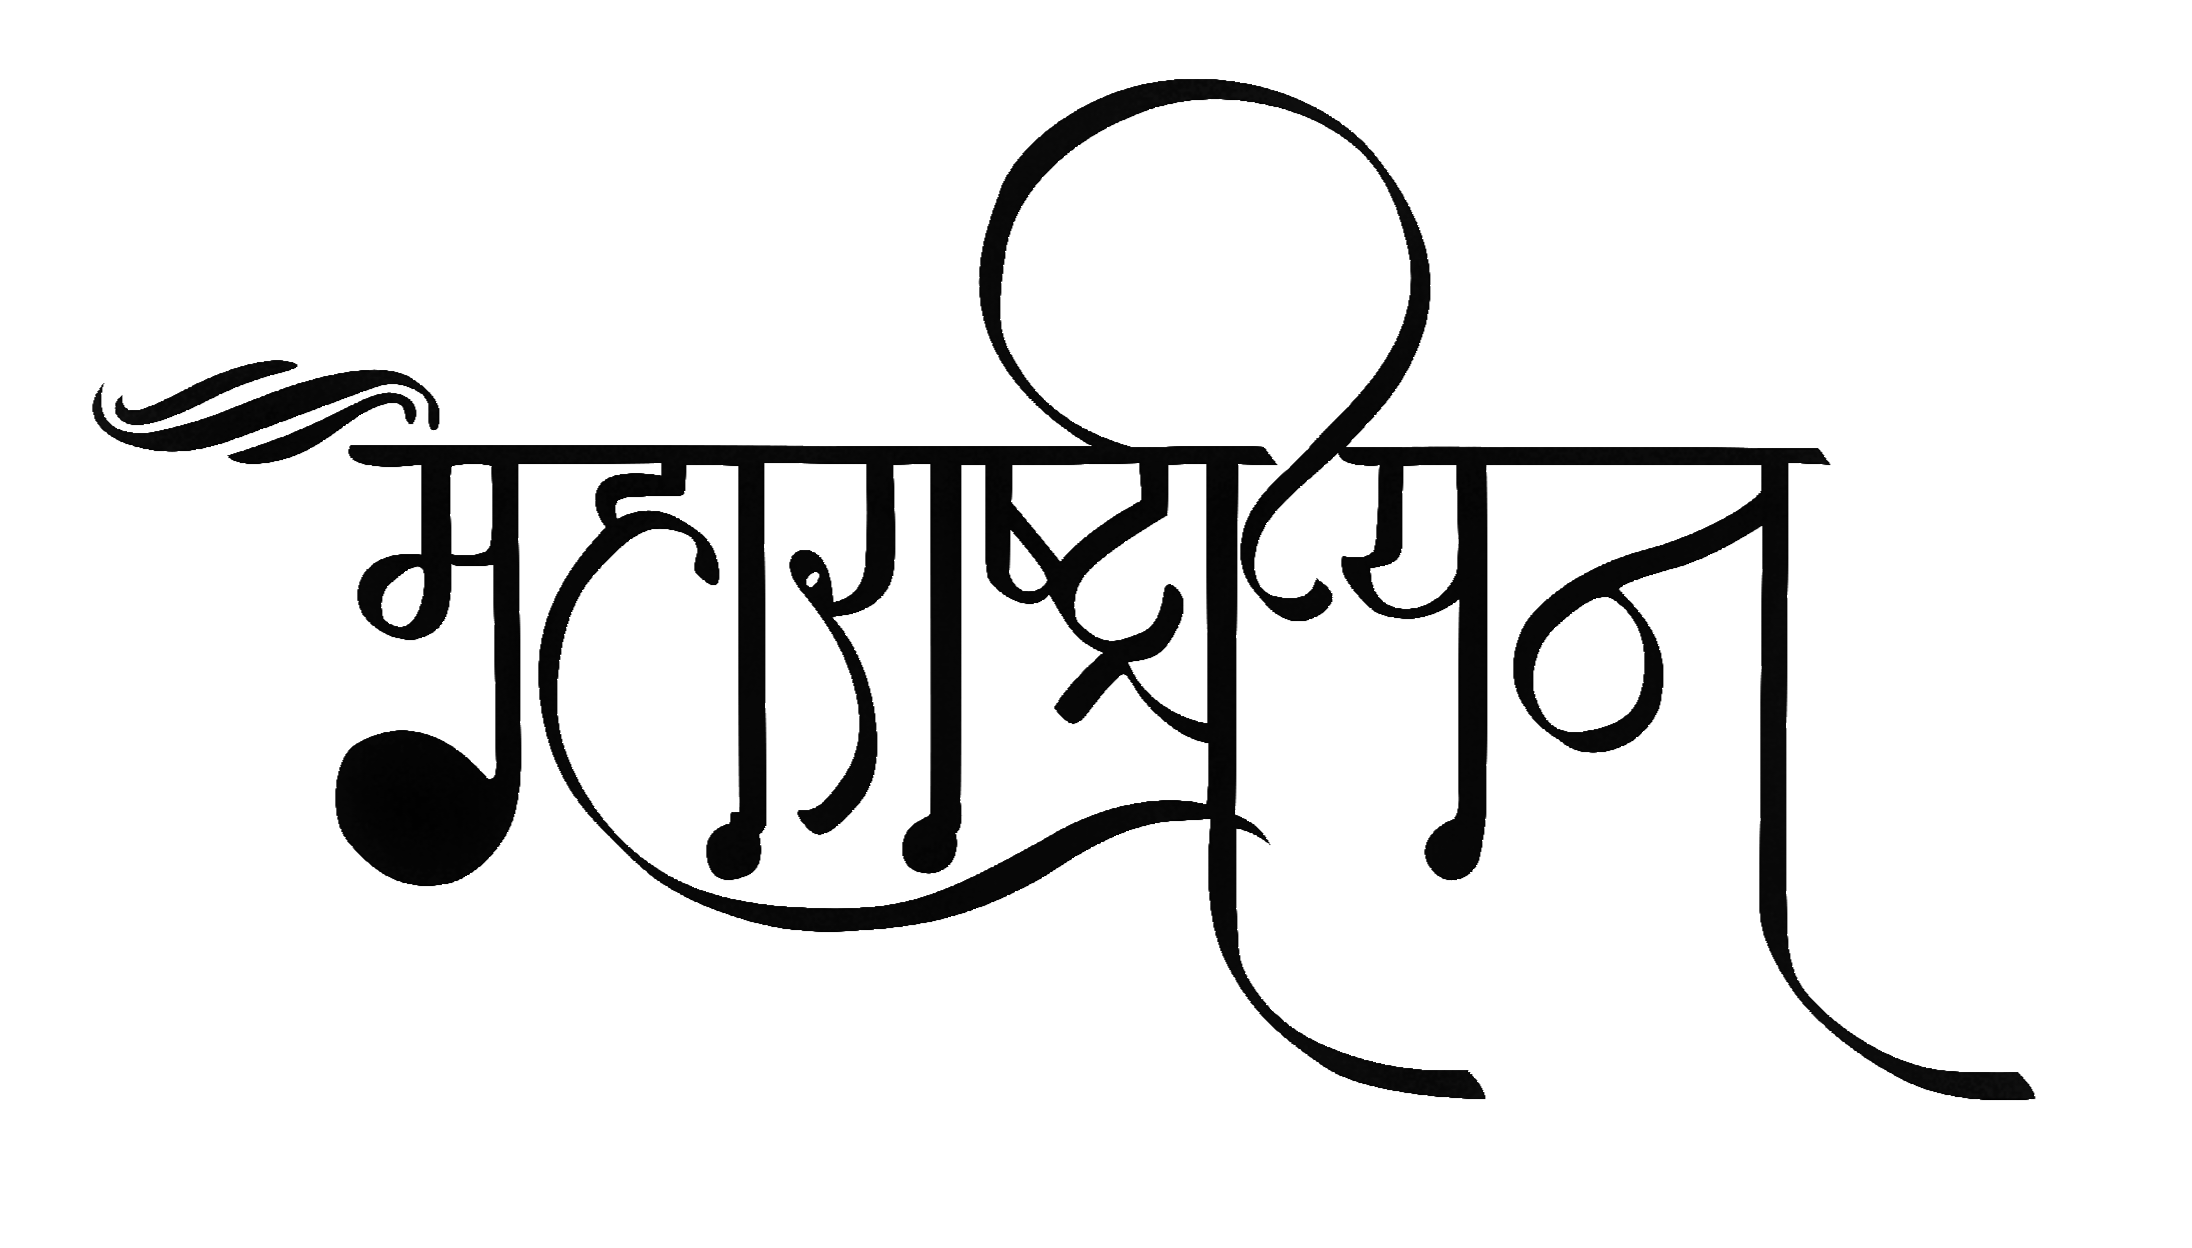 महाराष्ट्रीयन